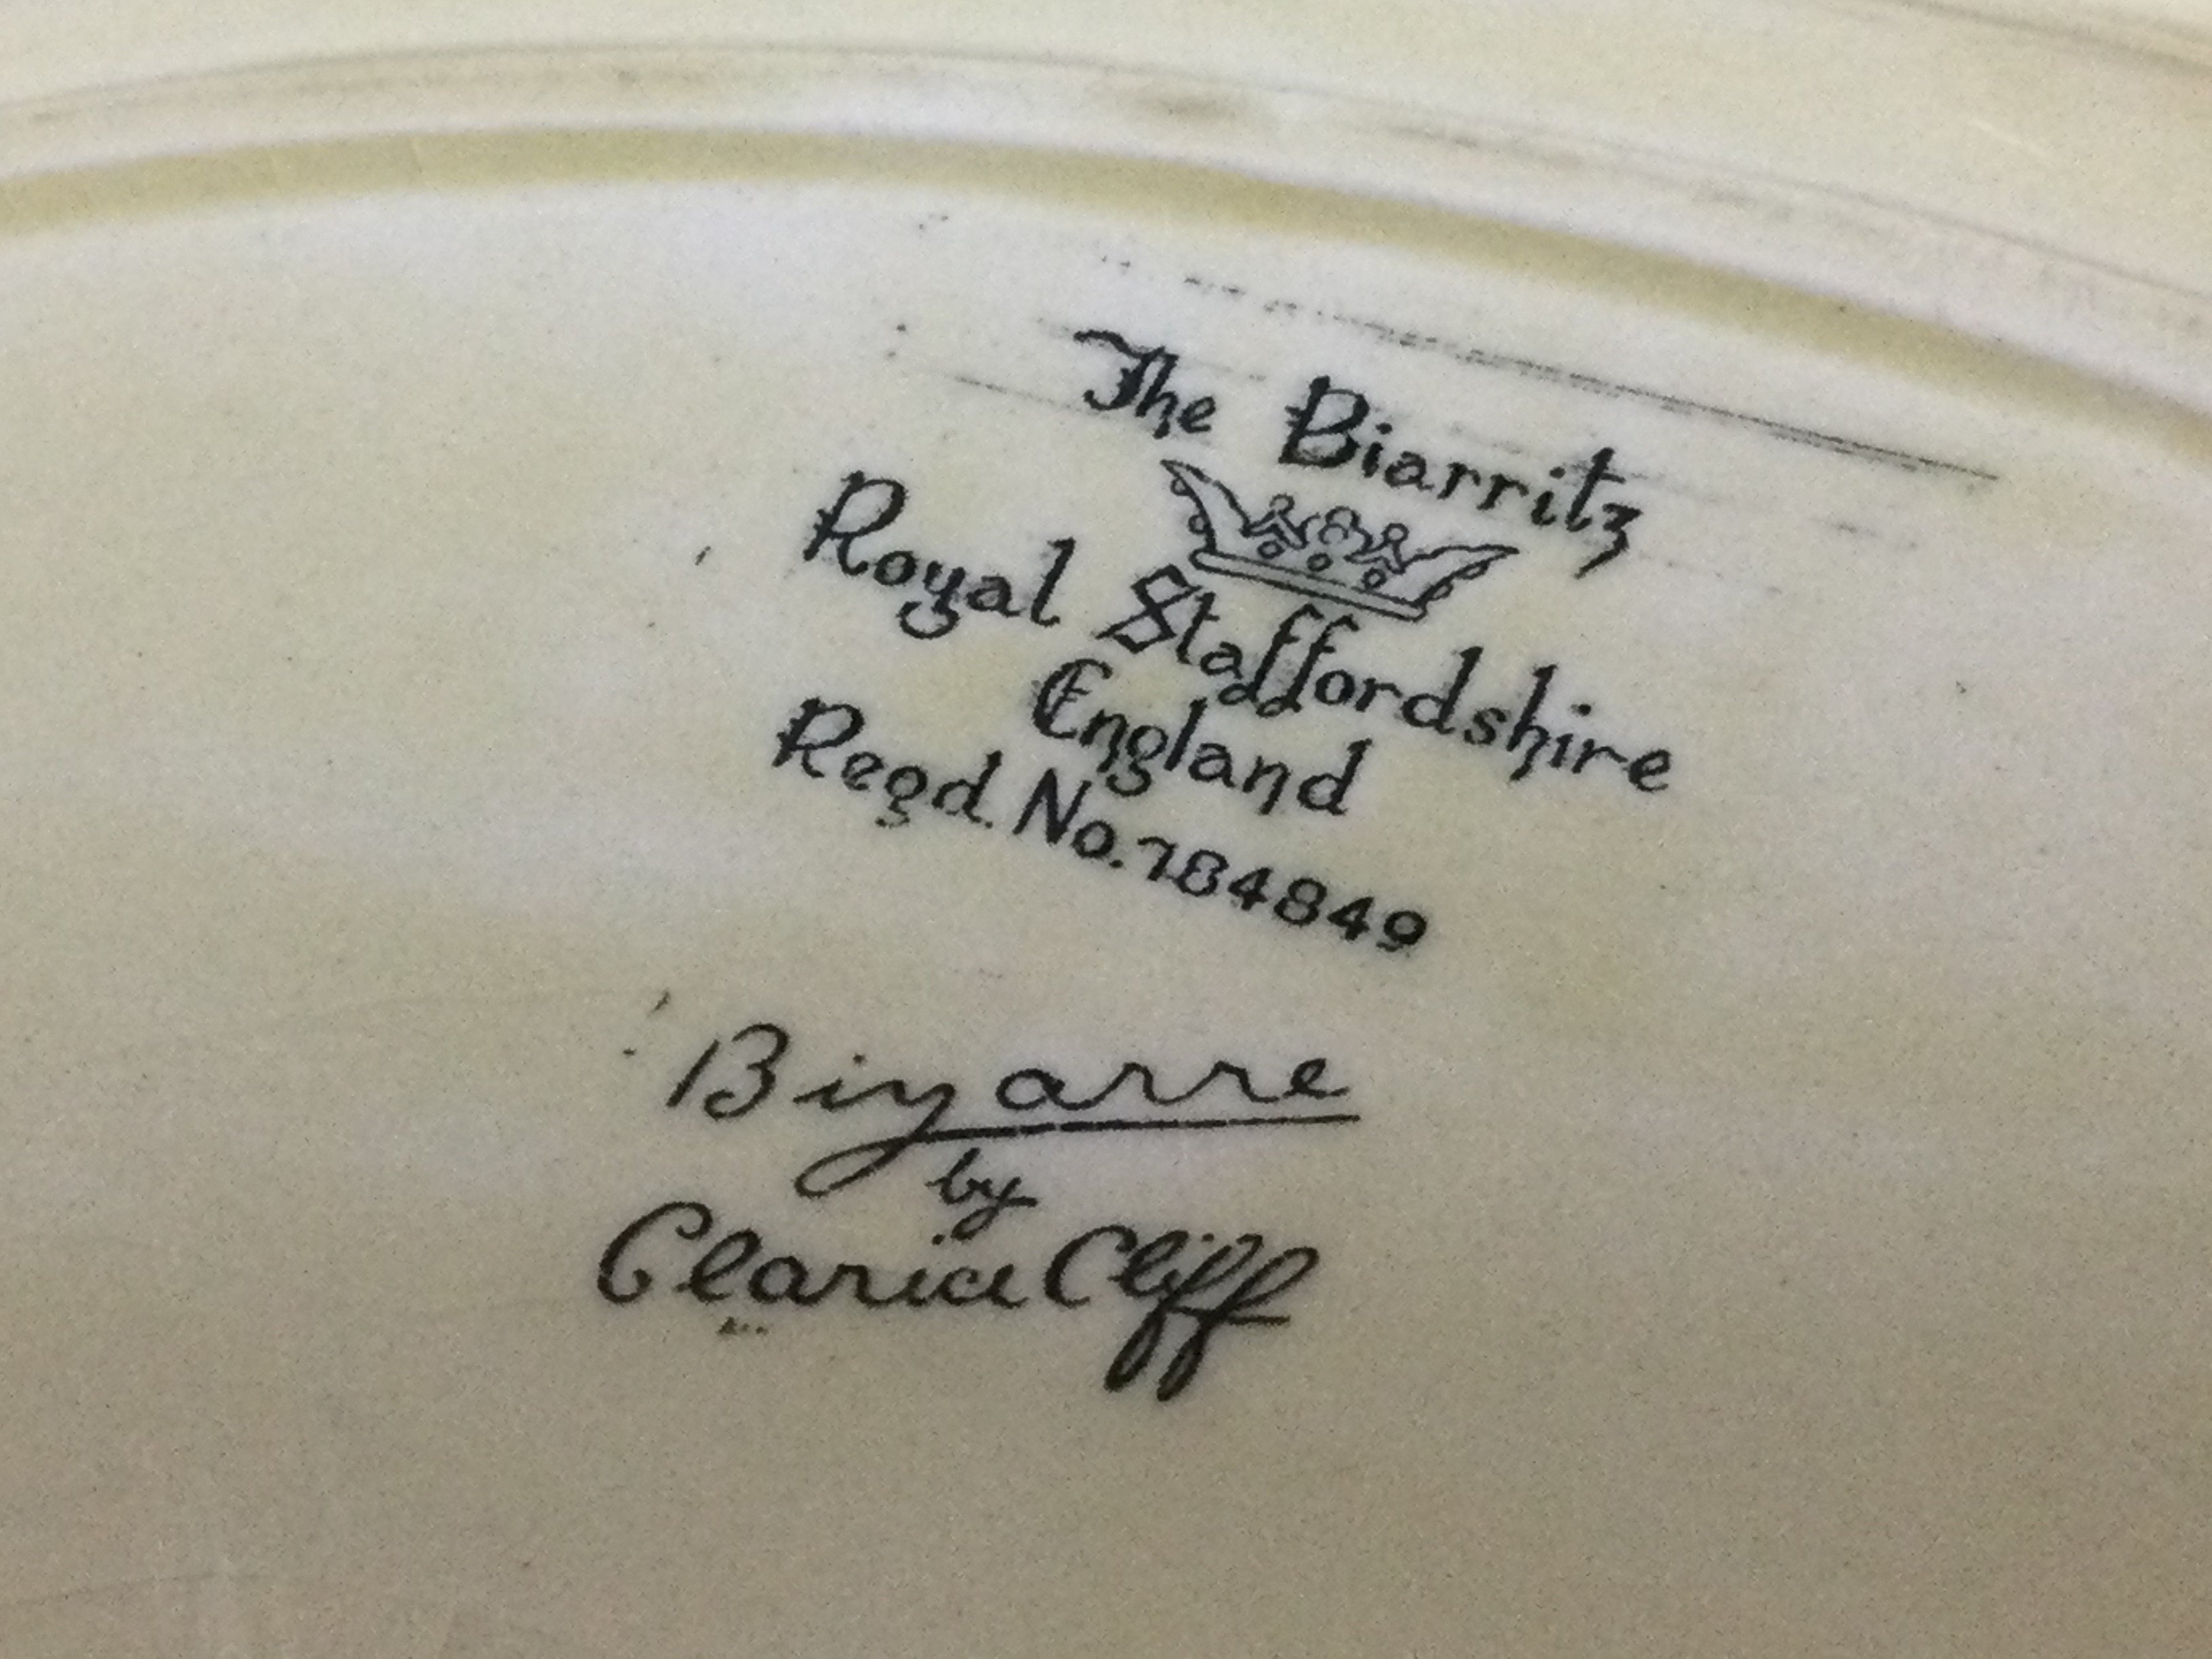 The Biarritz
Royal Staffordshire
England
Regd. No. 784849
Bizarre
by
Clarice Cliff